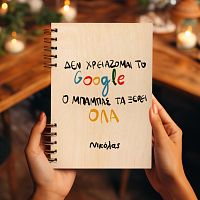 ΔΕΝ ΧΡΕΙΑΖΟΜΑΙ ΤΟ
Google
Ο ΜΠΑΜΠΑΣ ΤΑ ΞΕΡΕΙ
ΟΛΑ
Νικόλας